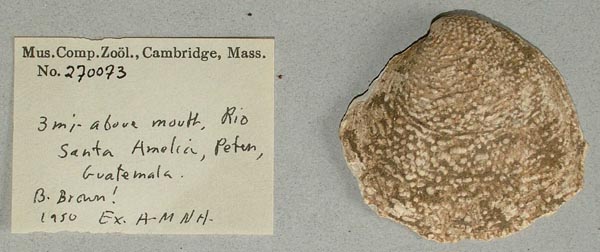 Mus.Comp.Zoöl., Cambridge, Mass.
No. 270073
3 mi. above mouth, Rio
Santa Amelia, Peten,
Guatemala.
B. Brown!
1950 Ex. A-M N H.